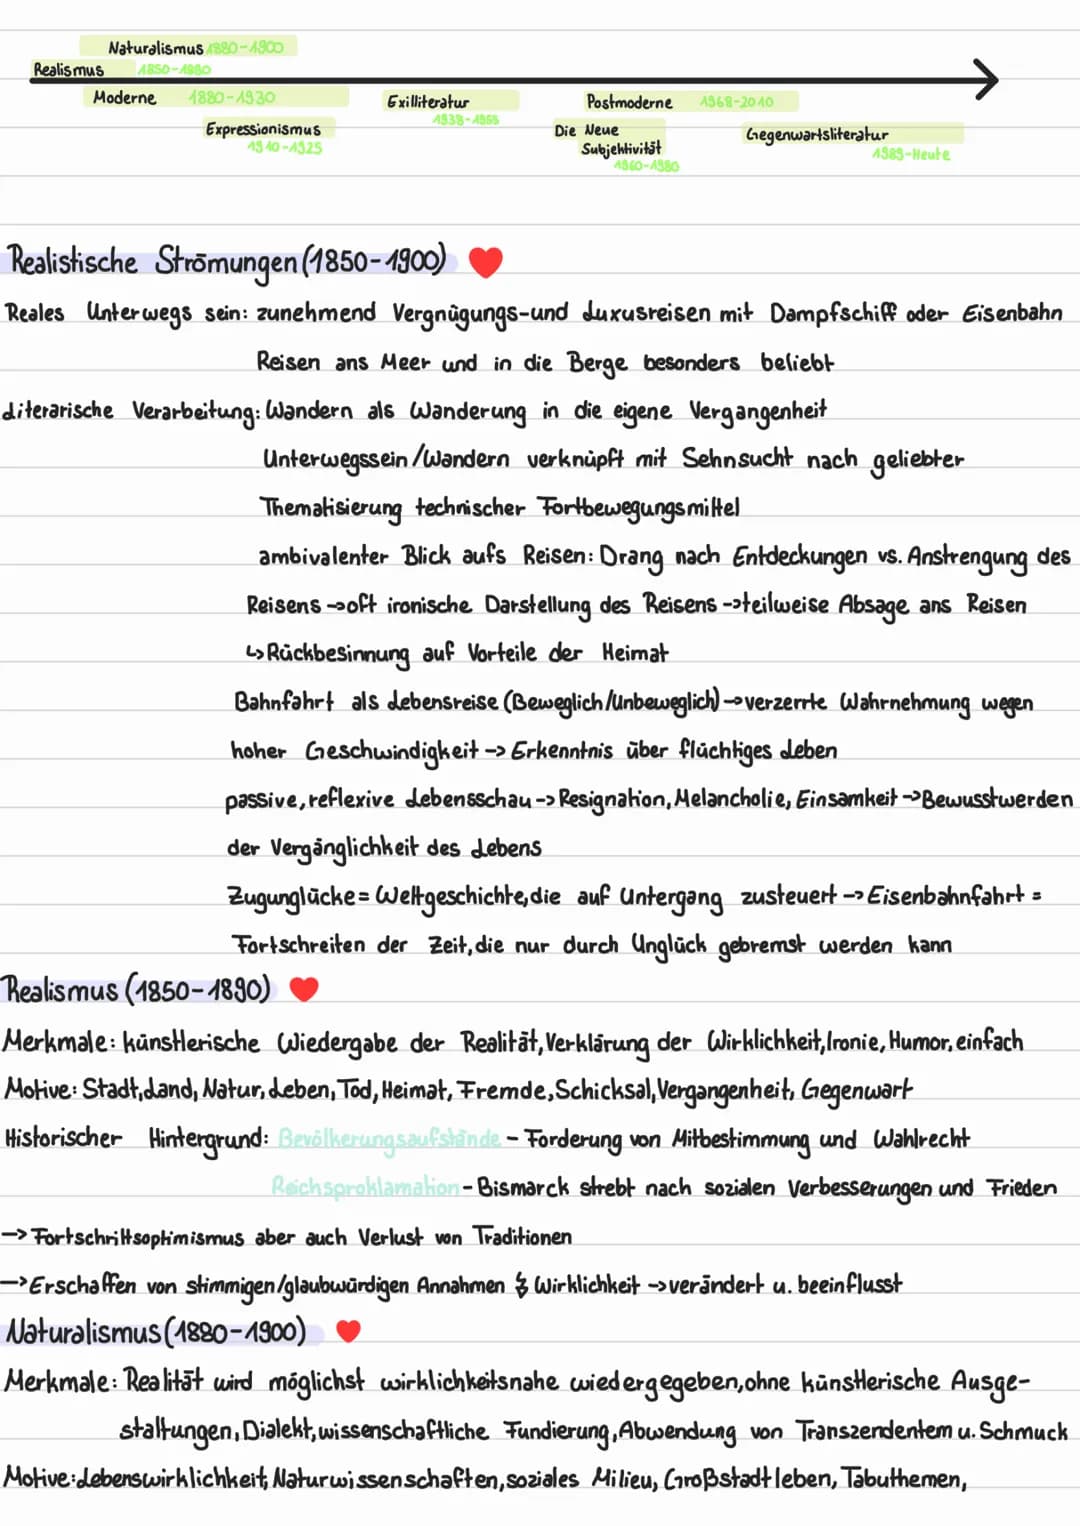 Naturalismus 1880-1900
Realismus 1850-1890
Moderne 1880-1930
Exilliteratur
Postmoderne 1968-2010
1938-1955
Expressionismus
Die Neue
Gegenwartsliteratur
1910-1925
Subjektivität
1989-Heute
1960-1980
Realistische Strömungen (1850-1900) ❤
Reales Unterwegs sein: zunehmend Vergnügungs-und Luxusreisen mit Dampfschiff oder Eisenbahn
Reisen ans Meer und in die Berge besonders beliebt
Literarische Verarbeitung: Wandern als Wanderung in die eigene Vergangenheit
Unterwegssein/Wandern verknüpft mit Sehnsucht nach geliebter
Thematisierung technischer Fortbewegungsmittel
ambivalenter Blick aufs Reisen: Drang nach Entdeckungen vs. Anstrengung des
Reisens → oft ironische Darstellung des Reisens → teilweise Absage ans Reisen
↳ Rückbesinnung auf Vorteile der Heimat
Bahnfahrt als Lebensreise (Beweglich/Unbeweglich) → verzerrte Wahrnehmung wegen
hoher Geschwindigkeit → Erkenntnis über flüchtiges Leben
passive, reflexive Lebensschau → Resignation, Melancholie, Einsamkeit → Bewusstwerden
der Vergänglichkeit des Lebens
Zugunglücke = Weltgeschichte, die auf Untergang zusteuert → Eisenbahnfahrt =
Fortschreiten der Zeit, die nur durch Unglück gebremst werden kann
Realismus (1850-1890) ❤
Merkmale: künstlerische Wiedergabe der Realität, Verklärung der Wirklichkeit, Ironie, Humor, einfach
Motive: Stadt, Land, Natur, Leben, Tod, Heimat, Fremde, Schicksal, Vergangenheit, Gegenwart
Historischer Hintergrund: Bevölkerungsaufstände - Forderung von Mitbestimmung und Wahlrecht
Reichsproklamation - Bismarck strebt nach sozialen Verbesserungen und Frieden
→ Fortschrittsoptimismus aber auch Verlust von Traditionen
→ Erschaffen von stimmigen/glaubwürdigen Annahmen ↯ Wirklichkeit → verändert u. beeinflusst
Naturalismus (1880-1900) ❤
Merkmale: Realität wird möglichst wirklichkeitsnahe wiedergegeben, ohne künstlerische Ausge-
staltungen, Dialekt, wissenschaftliche Fundierung, Abwendung von Transzendentem u. Schmuck
Motive: Lebenswirklichkeit, Naturwissenschaften, soziales Milieu, Großstadtleben, Tabuthemen,